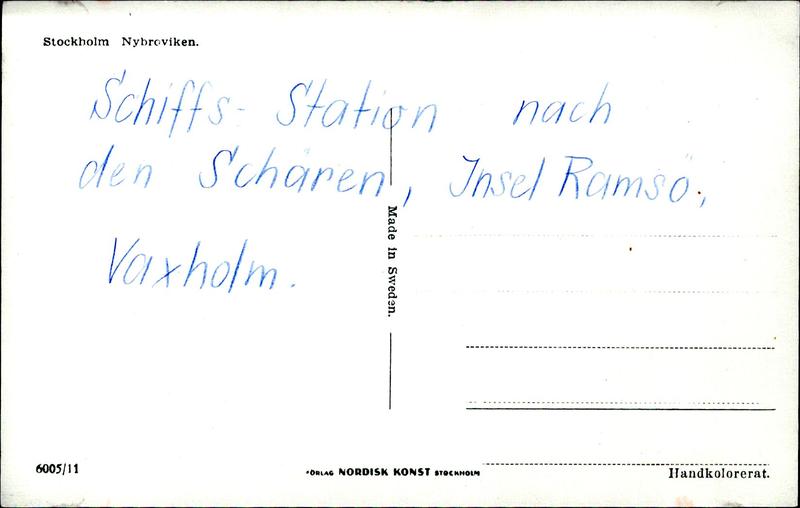 Stockholm Nybroviken.
Schiffs-Station nach
den Schären, Insel Ramsö,
Vaxholm.
Made in Sweden.
6005/11
FÖRLAG NORDISK KONST STOCKHOLM
Handkolorerat.